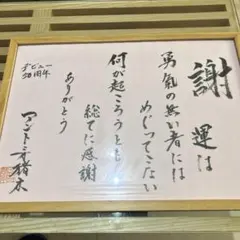 謝
運は
勇氣の無い者には
めぐってこない
何が起ころうとも
総てに感謝
ありがとう
デビュー
30周年
アントニオ猪木